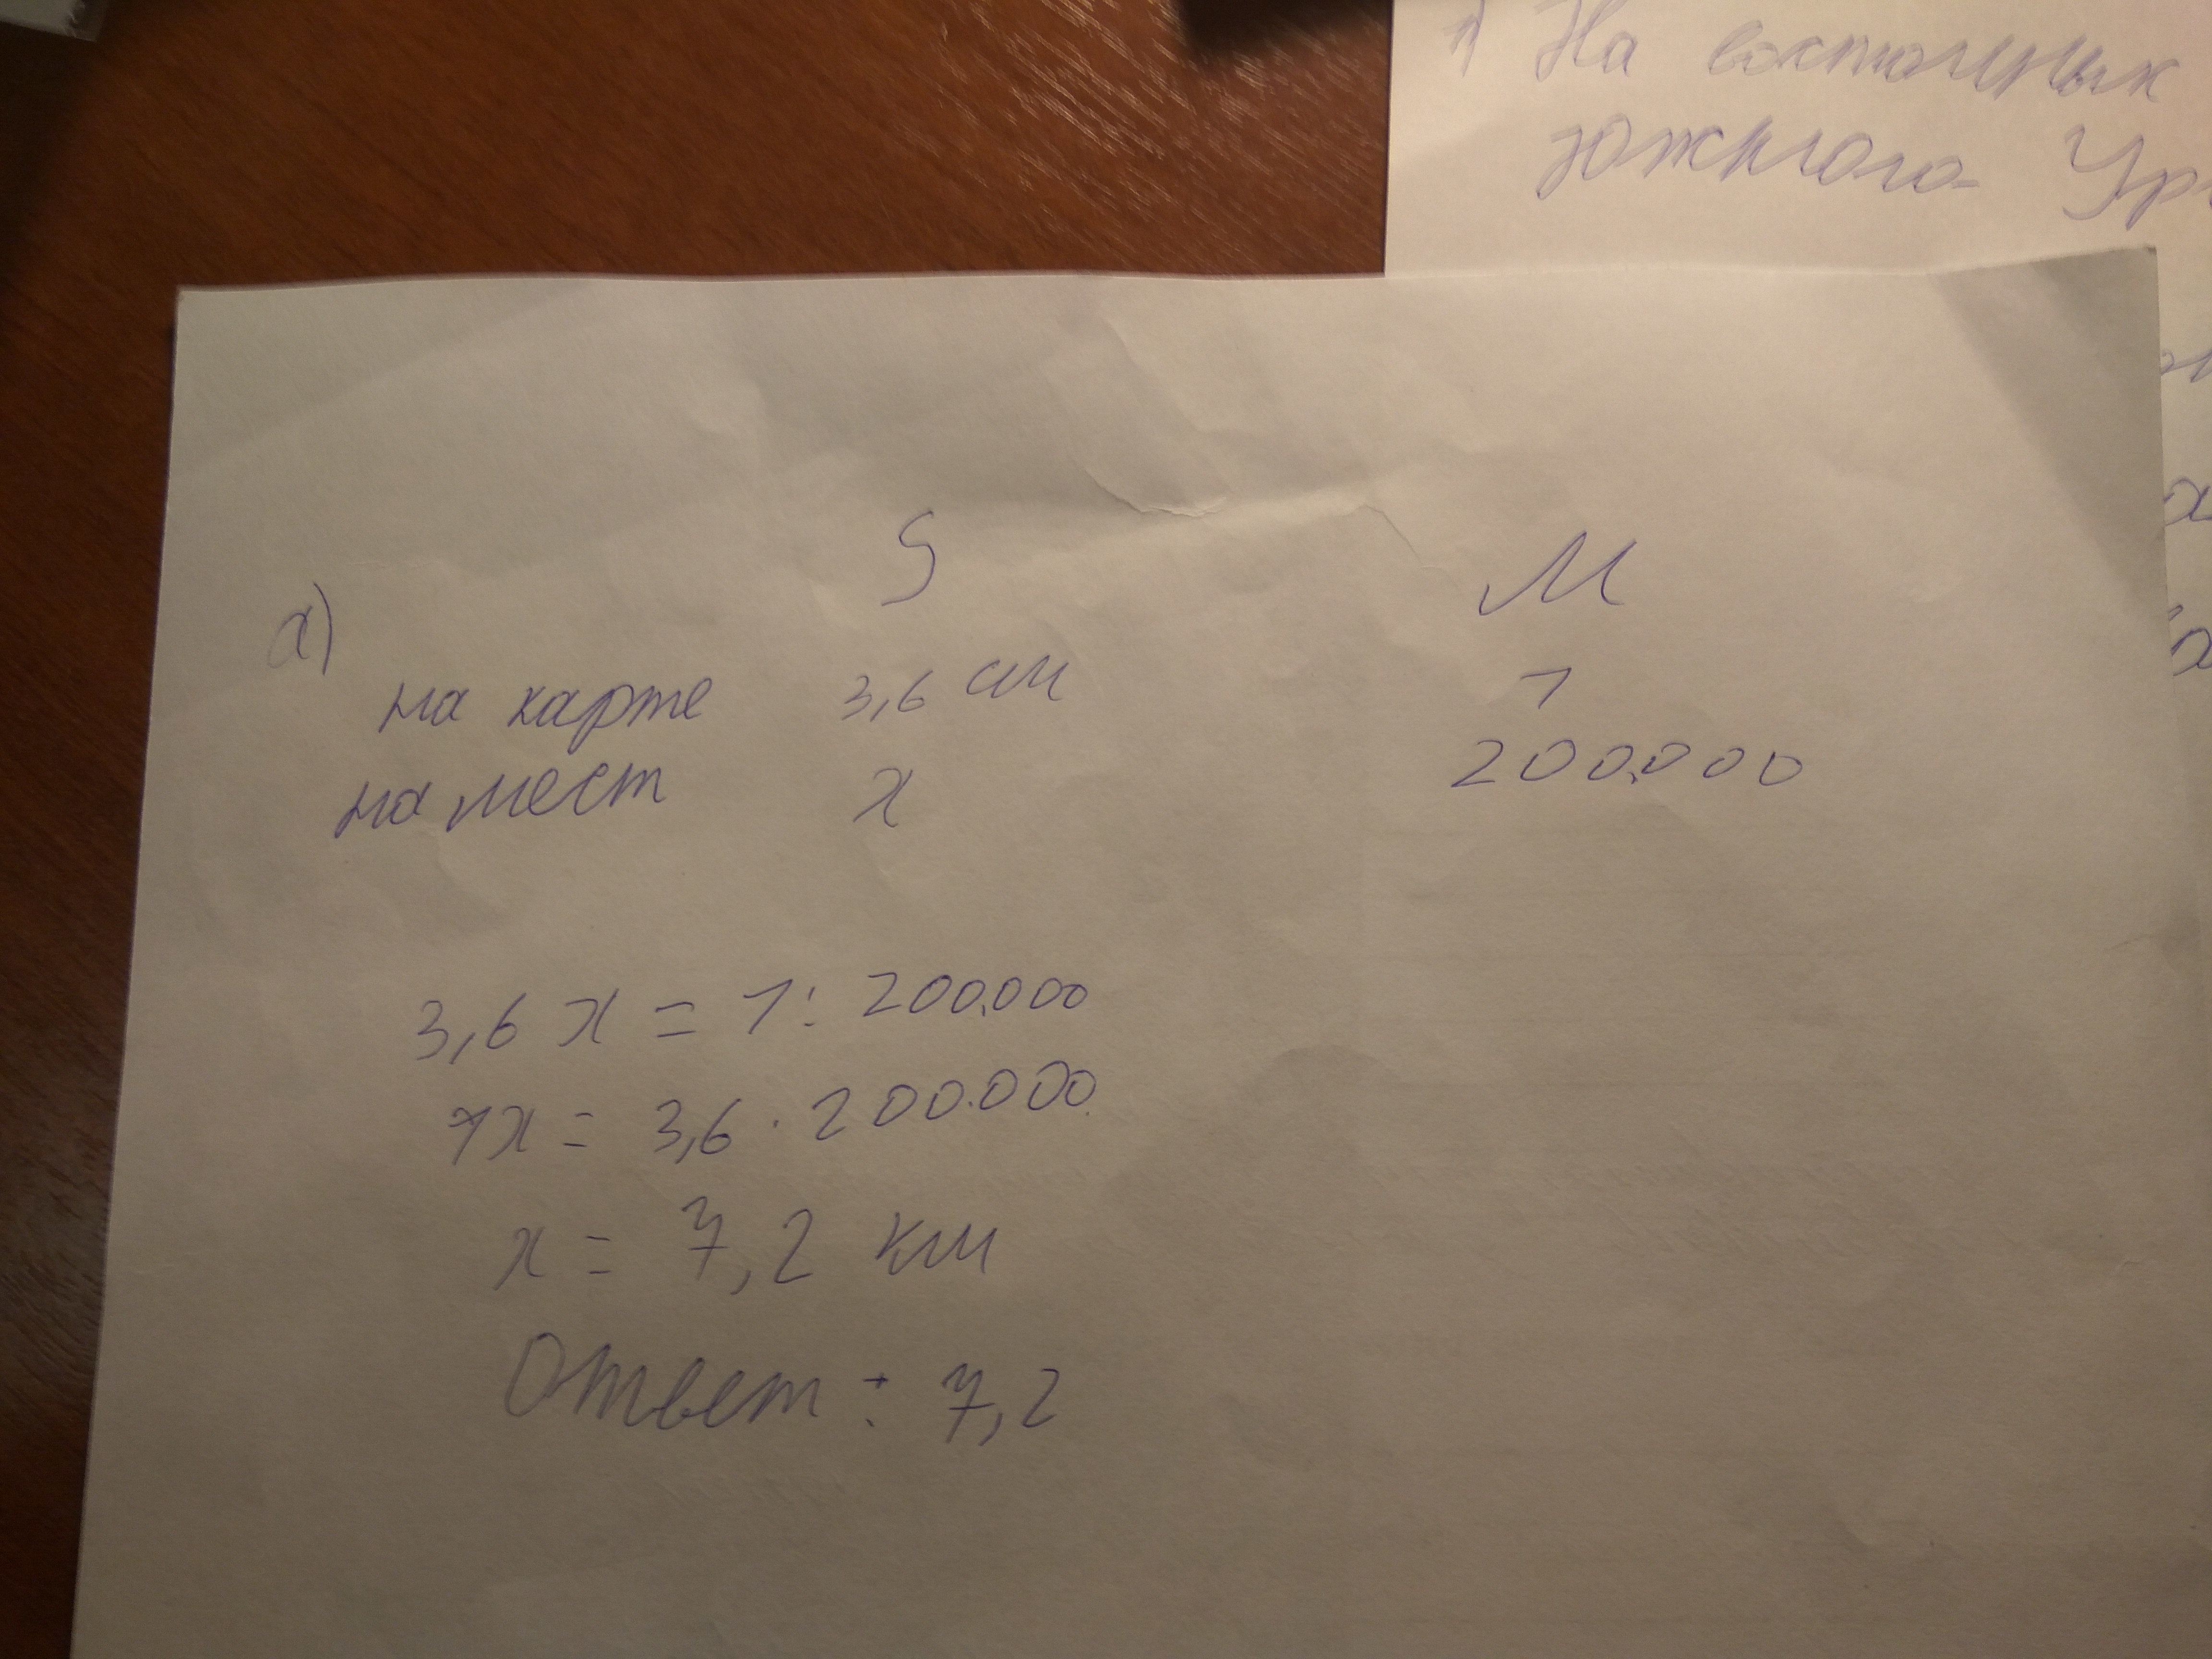 1) На восточных
Южного Ур
S M
а)
на карте 3,6 см 1
на мест х 200.000
3,6 х = 1: 200.000
1х = 3,6 · 200.000.
х = 7,2 км
Ответ: 7,2